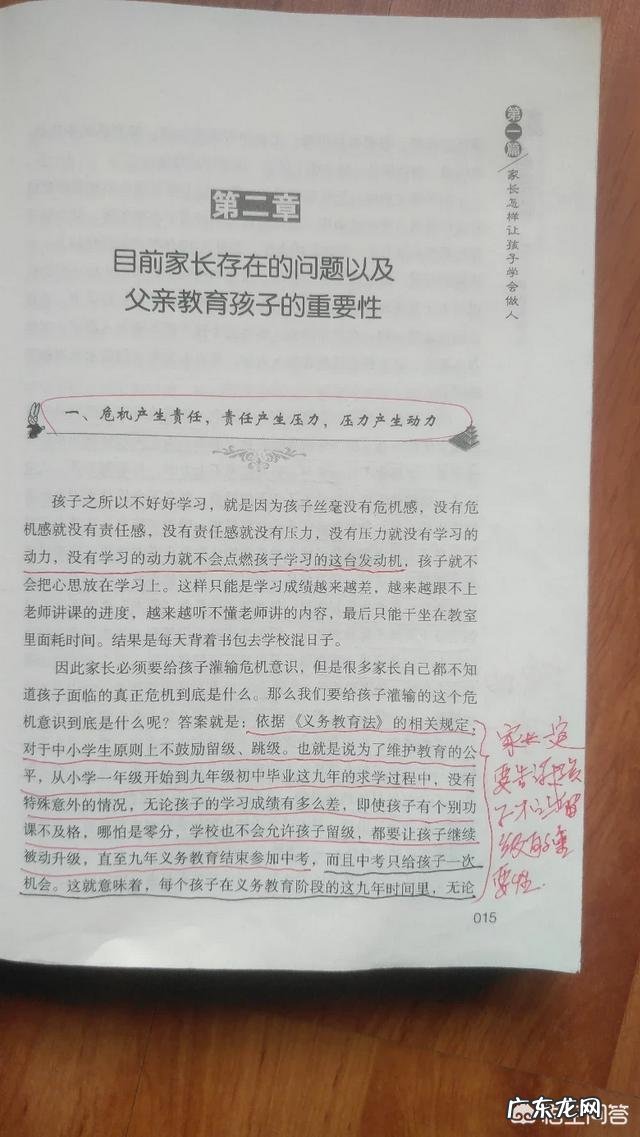 第一篇
家长怎样让孩子学会做人
第二章
目前家长存在的问题以及
父亲教育孩子的重要性
一、危机产生责任，责任产生压力，压力产生动力
孩子之所以不好好学习，就是因为孩子丝毫没有危机感，没有危
机感就没有责任感，没有责任感就没有压力，没有压力就没有学习的
动力，没有学习的动力就不会点燃孩子学习的这台发动机，孩子就不
会把心思放在学习上。这样只能是学习成绩越来越差，越来越跟不上
老师讲课的进度，越来越听不懂老师讲的内容，最后只能干坐在教室
里面耗时间。结果是每天背着书包去学校混日子。
因此家长必须要给孩子灌输危机意识，但是很多家长自己都不知
道孩子面临的真正危机到底是什么。那么我们要给孩子灌输的这个危
机意识到底是什么呢？答案就是：依据《义务教育法》的相关规定，
对于中小学生原则上不鼓励留级、跳级。也就是说为了维护教育的公
平，从小学一年级开始到九年级初中毕业这九年的求学过程中，没有
特殊意外的情况，无论孩子的学习成绩有多么差，即使孩子有个别功
课不及格，哪怕是零分，学校也不会允许孩子留级，都要让孩子继续
被动升级，直至九年义务教育结束参加中考，而且中考只给孩子一次
机会。这就意味着，每个孩子在义务教育阶段的这九年时间里，无论
家长一定
要告诉孩
子不让留
级的重
要性.
015
悟空问答
广东龙网